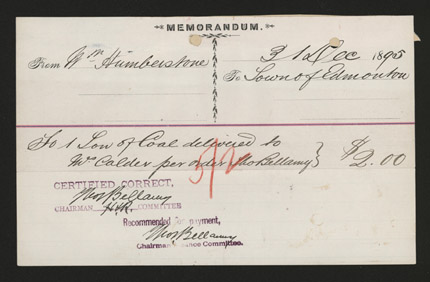 MEMORANDUM.
From Wm Humberstone
31 Dec 1895
To Town of Edmonton
To 1 Ton of Coal delivered to
Mrs Calder per order Thos Bellamy } $2.00
CERTIFIED CORRECT,
Thos Bellamy
CHAIRMAN COMMITTEE
Recommended payment,
Thos Bellamy
Chairman Finance Committee.